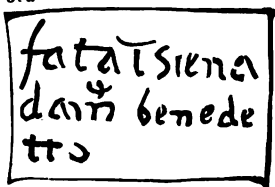 fata ī siena
da m̃ benede
tto